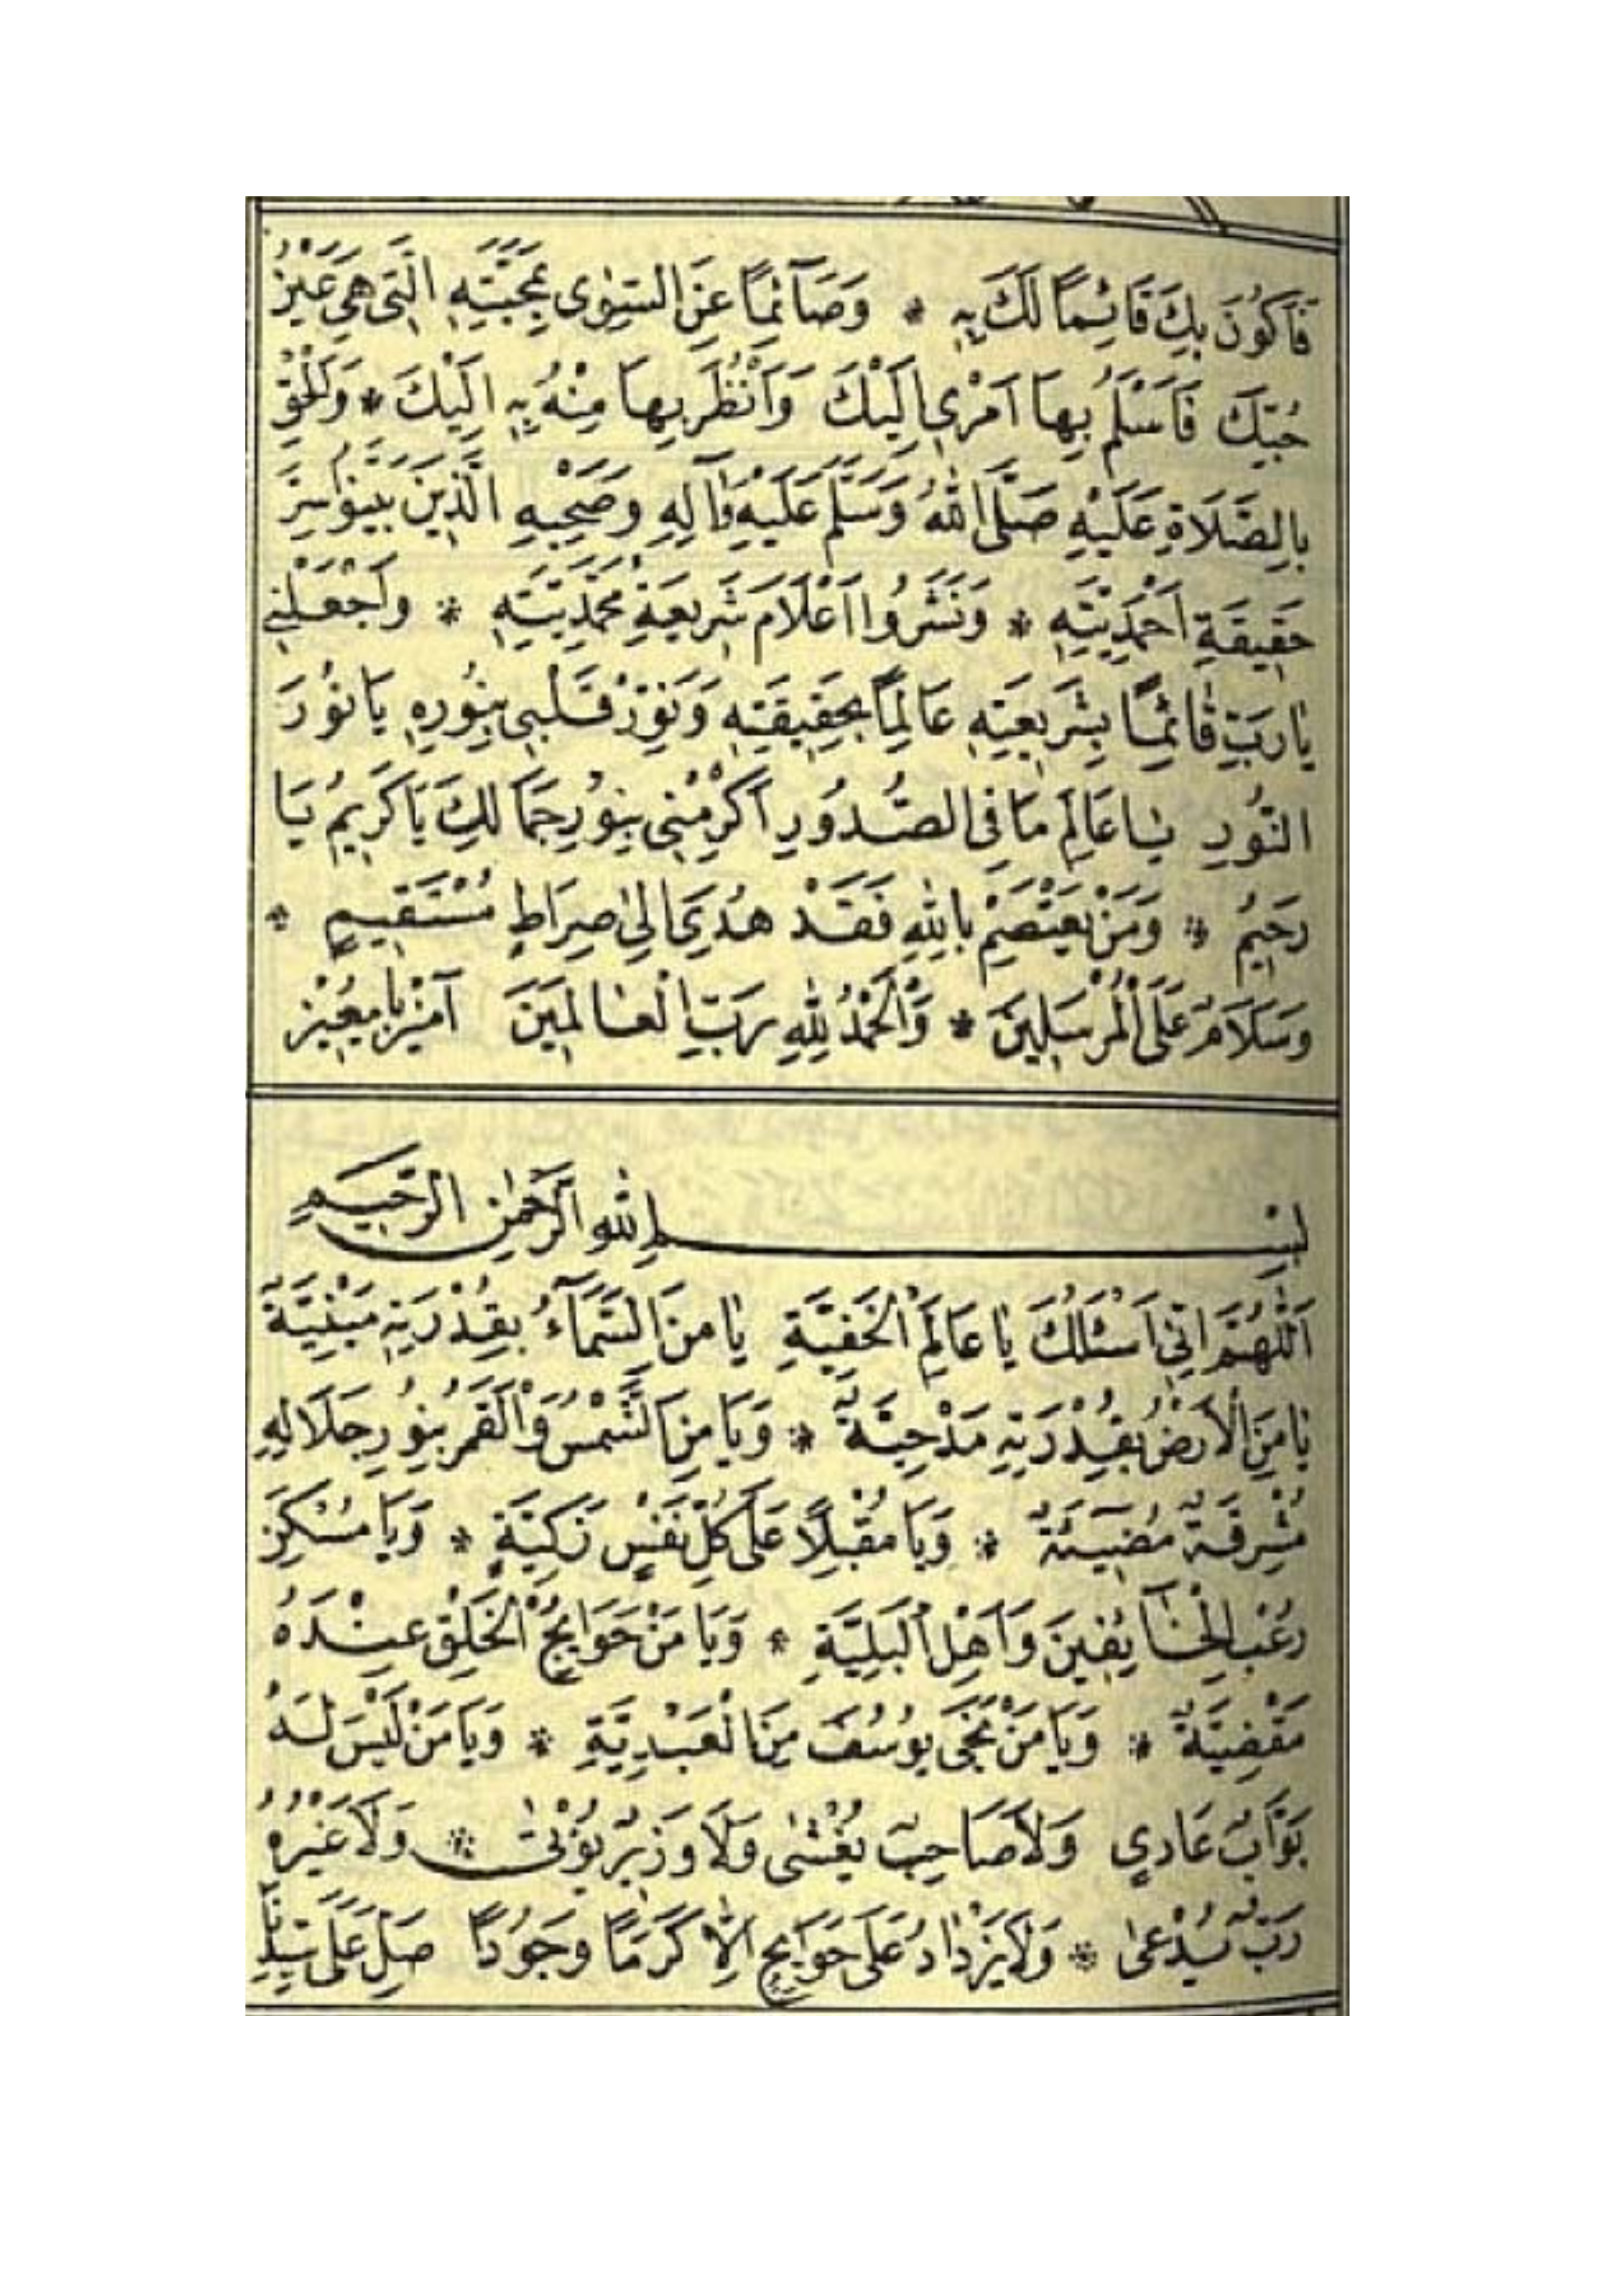 فَاَكُونَ بِكَ قَائِمًا لَكَ بِهِ * وَصَآئِمًا عَنِ السِّوٰى بِمَحَبَّتِهِ الَّتِى هِىَ عَيْنُ
حُبِّكَ فَاَسْلَمُ بِهَا اَمْرِى اِلَيْكَ وَاَنْظُرَ بِهَا مِنْهُ بِهِ اِلَيْكَ *
بِالصَّلَاةِ عَلَيْهِ صَلَّى اللّٰهُ وَسَلَّمَ عَلَيْهِ وَاٰلِهِ وَصَحْبِهِ الَّذِينَ بَيَّنُوا سِرَّ
حَقِيقَةِ اَحْمَدِيَّتِهِ * وَنَشَرُوا اَعْلَامَ شَرِيعَةِ مُحَمَّدِيَّتِهِ * وَاجْعَلْنِى
يٰارَبِّ قٰائِمًا بِشَرِيعَتِهِ عَالِمًا بِحَقِيقَتِهِ وَنَوِّرْ قَلْبِى بِنُورِهِ يَا نُورَ
النُّورِ يٰا عَالِمَ مَا فِى الصُّدُورِ اَكْرِمْنِى بِنُورِ جَمَالِكَ يَا كَرِيمُ يَا
رَحِيمُ * وَمَنْ يَعْتَصِمْ بِاللّٰهِ فَقَدْ هُدِىَ اِلٰى صِرَاطٍ مُسْتَقِيمٍ *
وَسَلَامٌ عَلَى الْمُرْسَلِينَ * وَالْحَمْدُ لِلّٰهِ رَبِّ الْعٰالَمِينَ آمِيْن يَا مُعِيْن
بِسْمِ اللّٰهِ الرَّحْمٰنِ الرَّحِيمِ
اَللّٰهُمَّ اِنِّى اَسْئَلُكَ يٰا عَالِمَ الْخَفِيَّةِ يٰا مَنِ السَّمَآءُ بِقُدْرَتِهِ مَبْنِيَّةٌ
يٰا مَنِ الْاَرْضُ بِقُدْرَتِهِ مَدْحِيَّةٌ * وَيَا مَنِ الشَّمْسُ وَالْقَمَرُ بِنُورِ جَلَالِهِ
مُشْرِقَةٌ مُضِيئَةٌ * وَيَا مُقْبِلًا عَلَى كُلِّ نَفْسٍ زَكِيَّةٍ * وَيَا مُسَكِّنَ
رُعْبِ الْخَآئِفِينَ وَاَهْلِ الْبَلِيَّةِ * وَيَا مَنْ حَوَايِجُ الْخَلْقِ عِنْدَهُ
مَقْضِيَّةٌ * وَيَا مَنْ نَجَّى يُوسُفَ مِنَ الْعَبْدِيَّةِ * وَيَا مَنْ لَيْسَ لَهُ
بَوَّابٌ عَادِى وَلَا صَاحِبٌ يُغْشٰى وَلَا وَزِيرٌ يُؤْتٰى * وَلَا غَيْرُهُ
رَبٌّ يُدْعٰى * وَلَا يَزْدٰادُ عَلَى حَوَايِجِ اِلَّا كَرَمًا وَجُودًا صَلِّ عَلَى سَيِّدِنَا